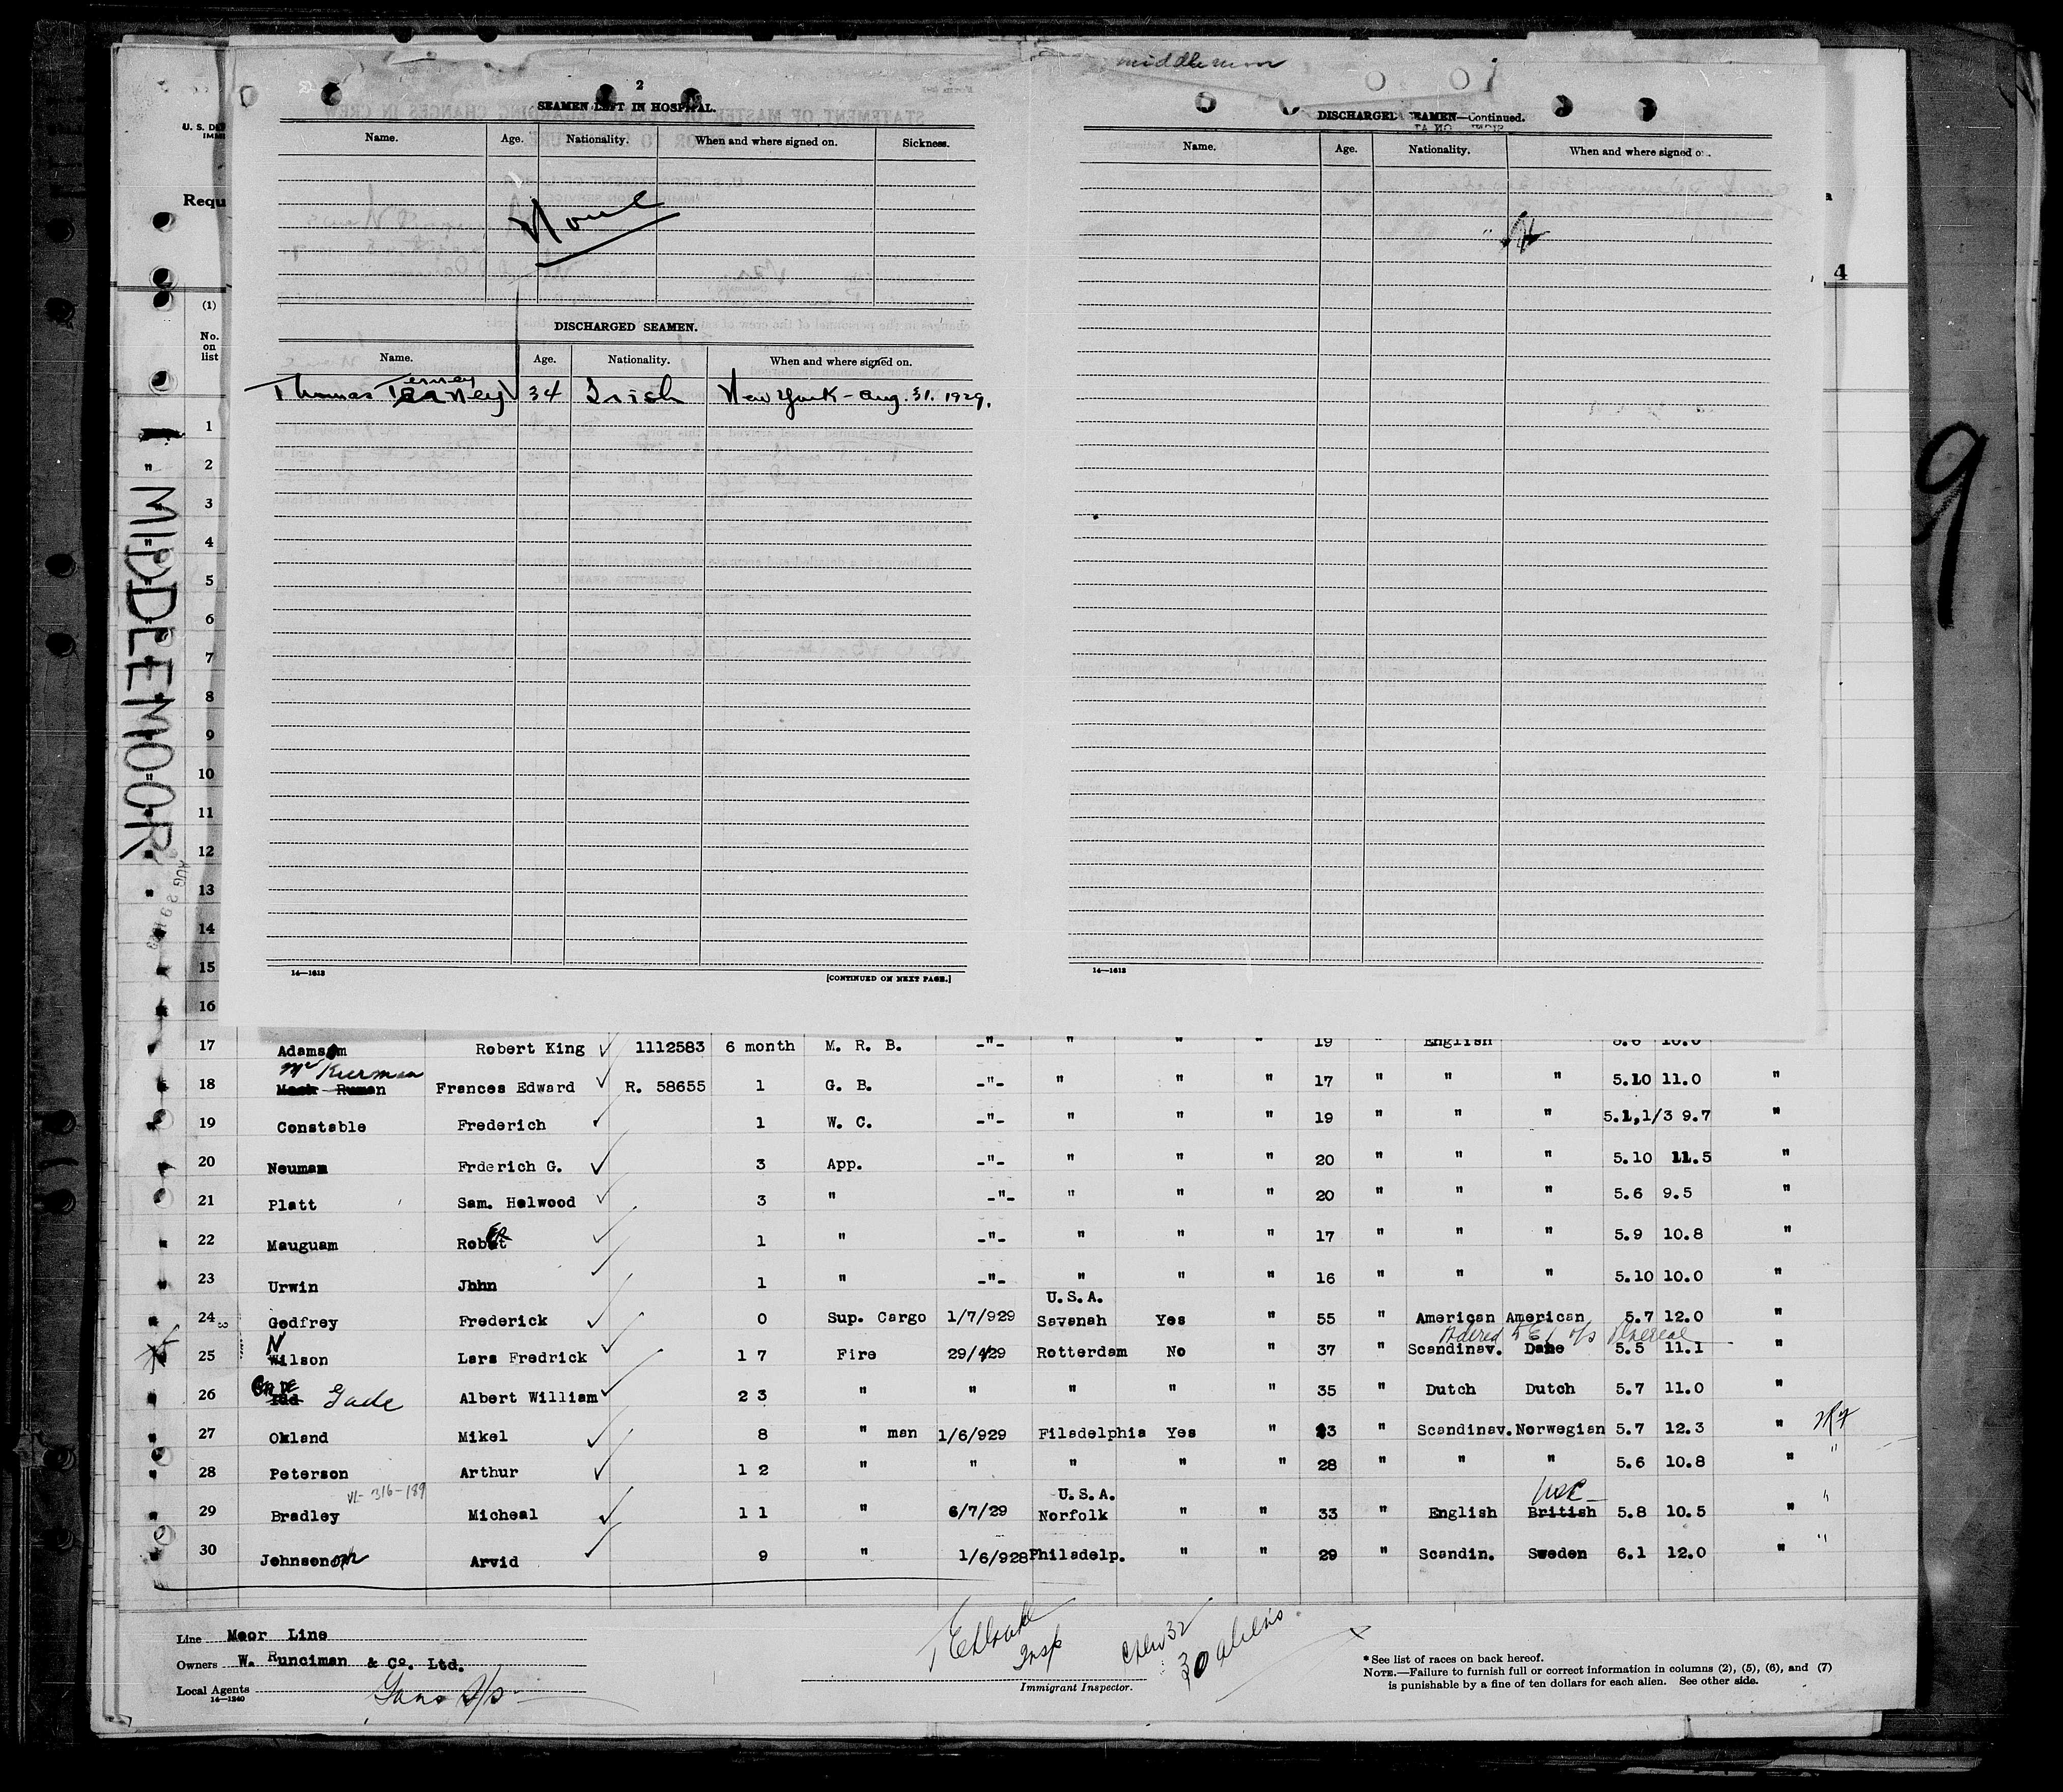 middlemoor
2
SEAMEN LEFT IN HOSPITAL.
Name. Age. Nationality. When and where signed on. Sickness.
None
DISCHARGED SEAMEN.
Name. Age. Nationality. When and where signed on.
Tenney
Thomas 34 Irish New York - Aug. 31. 1929.
14—1613 [CONTINUED ON NEXT PAGE.]
DISCHARGED SEAMEN—Continued.
Name. Age. Nationality. When and where signed
14—1613
U. S. DE
IMMI
Requ
4
9
(1)
No.
on
list
MIDDLEMOOR
1
2
3
4
5
6
7
8
9
10
11
12
13
14
15
16
17 Adamsom Robert King ✓ 1112583 6 month M. R. B. -"- " " " 19 " English 5.6 10.0
Mc Kierman
18 Frances Edward ✓ R. 58655 1 G. B. -"- " " " 17 " " " 5.10 11.0 "
19 Constable Frederich ✓ 1 W. C. -"- " " " 19 " " " 5.1,1/3 9.7 "
20 Neumam Frderich G. ✓ 3 App. -"- " " " 20 " " " 5.10 11.5 "
21 Platt Sam. Helwood ✓ 3 " -"- " " " 20 " " " 5.6 9.5 "
22 Mauguam Robert ✓ 1 " -"- " " " 17 " " " 5.9 10.8 "
23 Urwin Jhhn ✓ 1 " -"- " " " 16 " " " 5.10 10.0 "
U.S.A.
24 Godfrey Frederick ✓ 0 Sup. Cargo 1/7/929 Savanah Yes " 55 " American American 5.7 12.0 "
25 Wilson Lars Fredrick ✓ 1 7 Fire 29/4/29 Rotterdam No " 37 " Scandinav. Dane 5.5 11.1 "
26 Gade Albert William ✓ 2 3 " " " " " 35 " Dutch Dutch 5.7 11.0 "
27 Okland Mikel ✓ 8 " man 1/6/929 Filadelphia Yes " 3 " Scandinav. Norwegian 5.7 12.3 "
28 Peterson Arthur ✓ 1 2 " " " " " 28 " " " 5.6 10.8 " "
316-189 U.S.A.
29 Bradley Micheal ✓ 1 1 " 6/7/29 Norfolk " " 33 " English British 5.8 10.5 " "
30 Johnson Arvid ✓ 9 " 1/6/928 Philadelp. " " 29 " Scandin. Sweden 6.1 12.0 " "
Line Moor Line
Owners W. Runciman & Co. Ltd.
Local Agents
14—1240
Insp
Immigrant Inspector.
Crew 32
30 aliens
* See list of races on back hereof.
NOTE.—Failure to furnish full or correct information in columns (2), (5), (6), and (7)
is punishable by a fine of ten dollars for each alien. See other side.